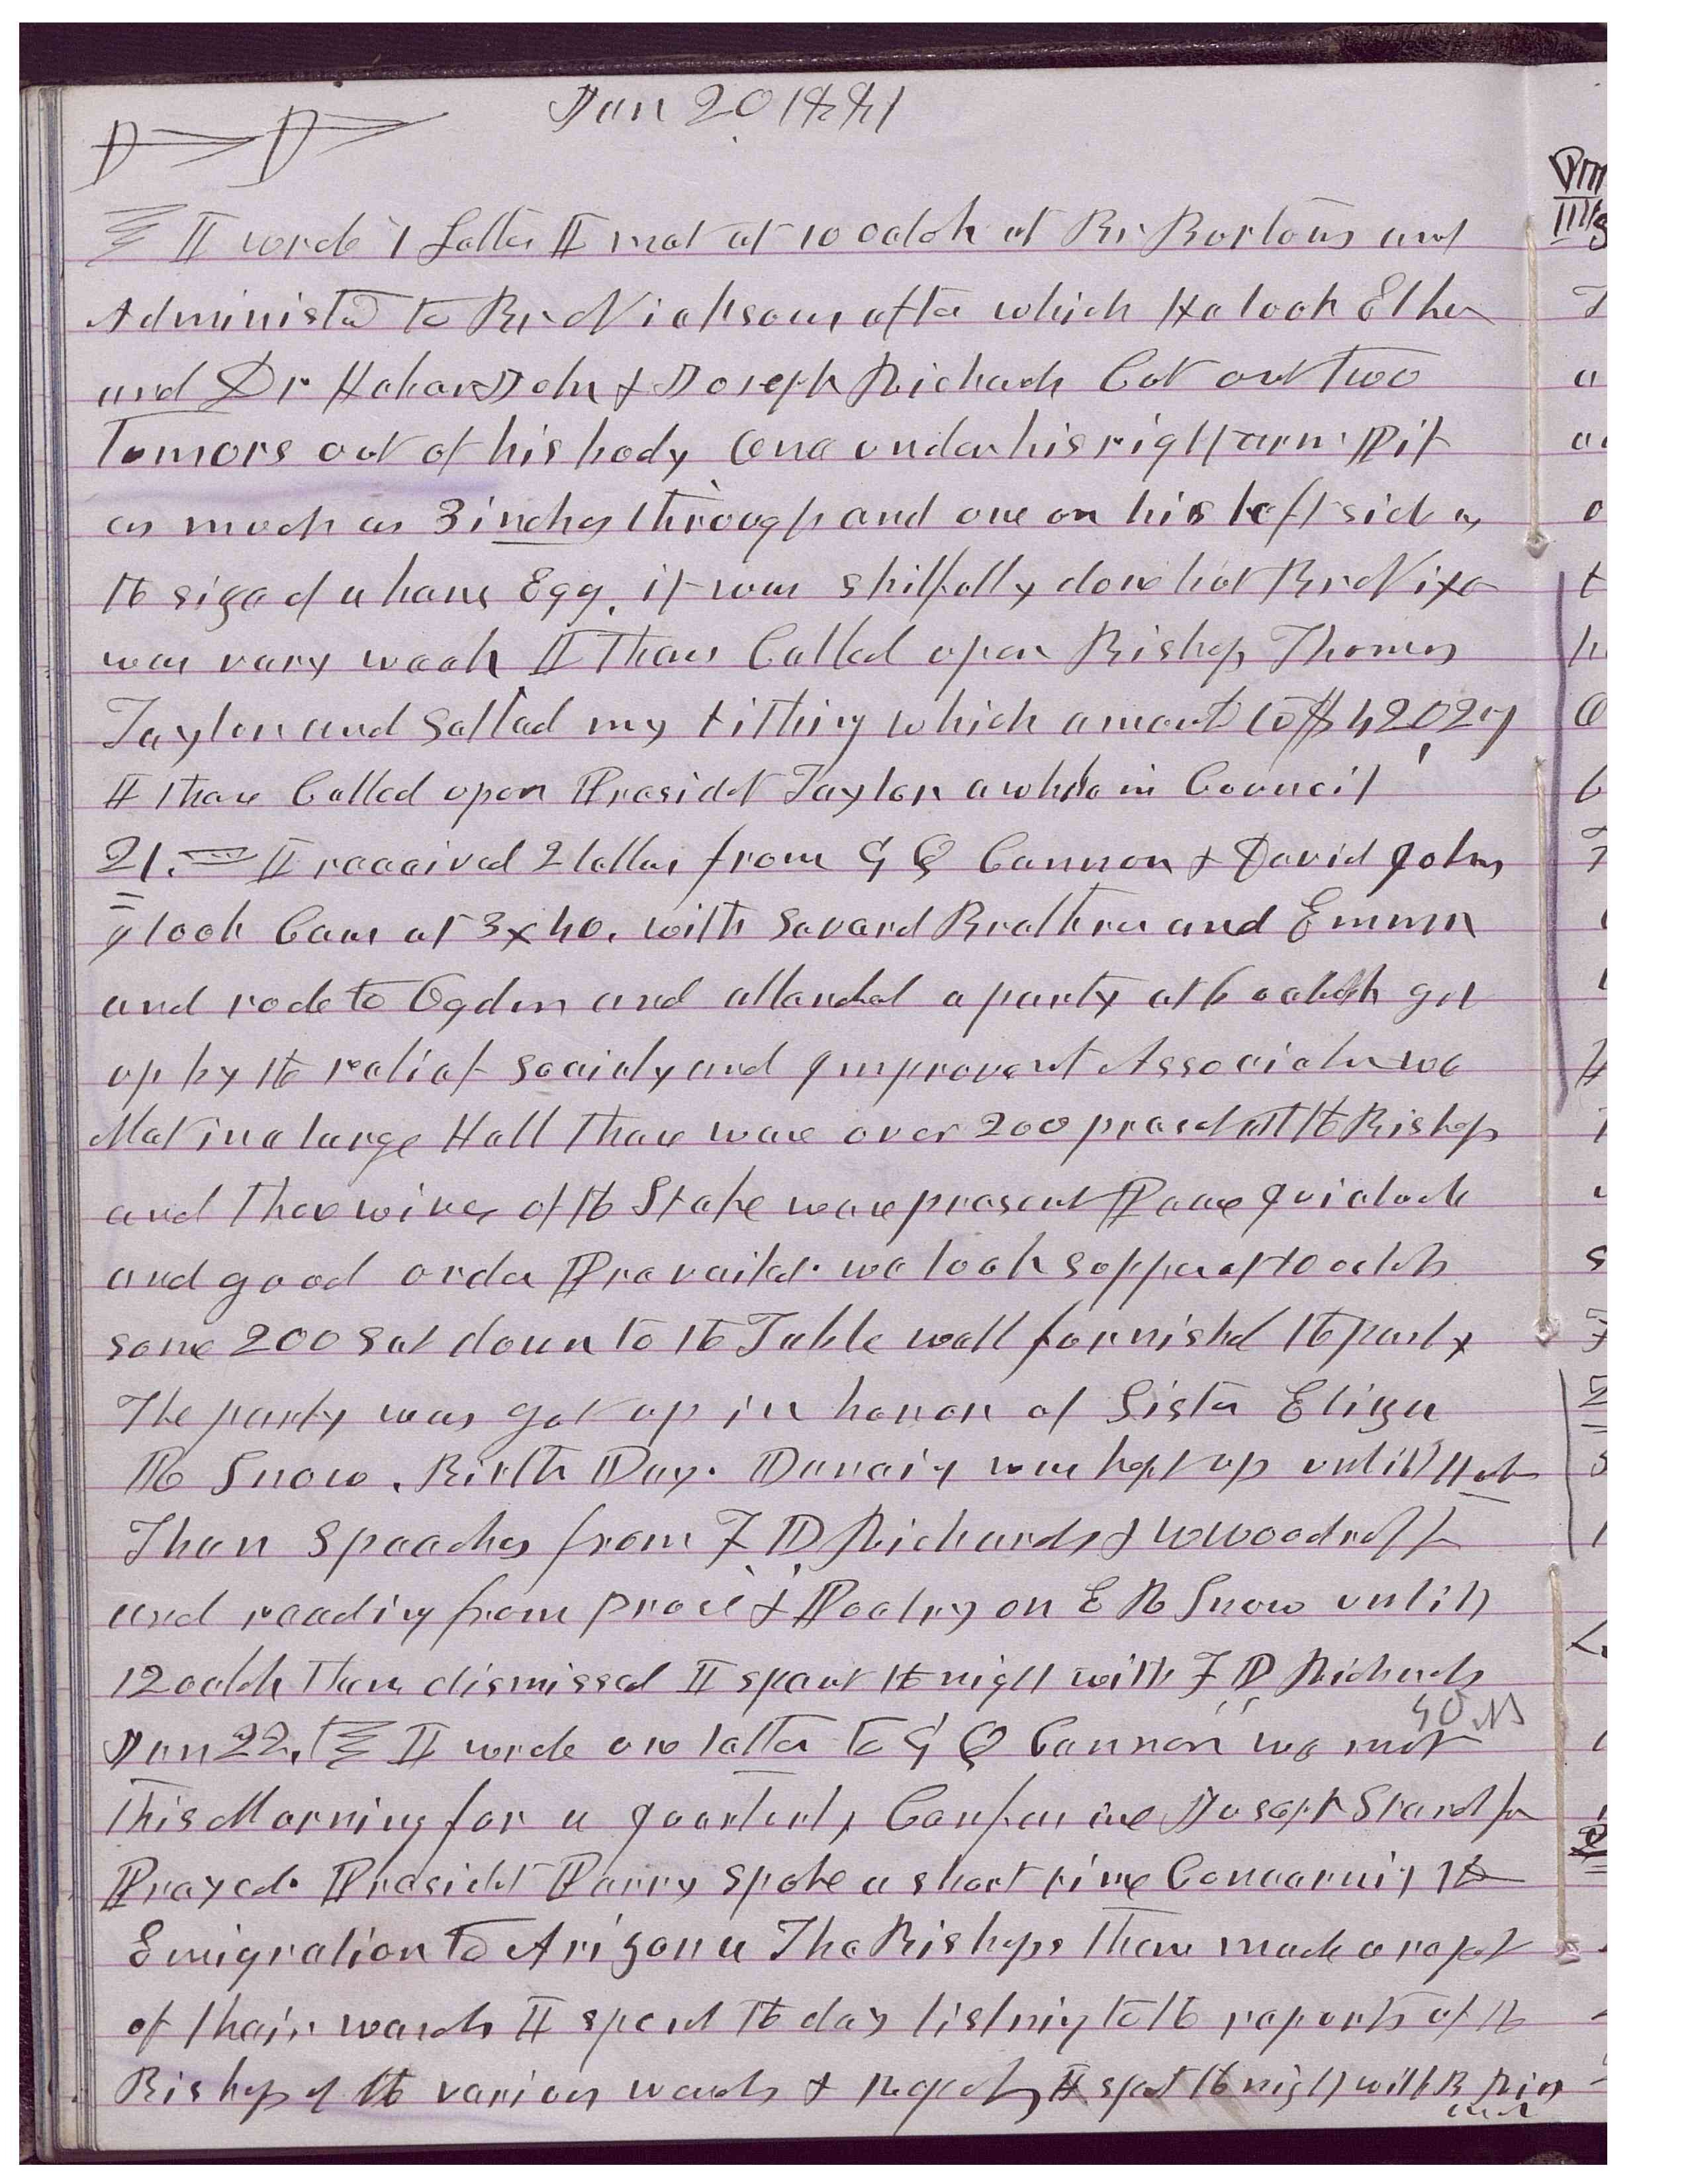 Jan 20 1881
I wrote 1 Letter I met at 10 oclok at Br Bortons and
Administed to Br Nickson after which He took Ether
and Dr John & Joseph Richards Cut out two
Tumors out of his body One under his right arm Pit
as much as 3 inches through and one on his left side as
the size of a hens Egg. it was skilfully done but Br Nixon
was very weak I then Called upon Bishop Thomas
Taylor and Settled my tithing which amount to $
I then Called upon Presidet Taylor a while in Council
21. I received 2 letters from G Q Cannon & David John
I took Cars at 3x40. with Several Brethren and Emma
and rode to Ogden and attended a party at 6 oclok got
up by the relief Society and Improvemt Association we
Met in a large Hall There were over 200 present all the Bishops
and there wives of the Stake were present Peace quietude
and good order Prevailed. we took supper at 10 oclok
some 200 Sat down to the Table well furnished the party
The party was got up in honor of Sister Eliza
R Snow. Birth Day. Dancing was kept up untill 11 ok
Then Speeches from F D Richards & W Woodruff
and reading from prose & Poetry on E R Snow untill
12 oclok then dismissed I spent the night with F D Richards
40 M
Jan 22. I wrote one letter to G Q Cannon we met
this Morning for a quarterly Conference Joseph Standford
Prayed. Presidet Perry spoke a short time Concerning the
Emigration to Arizona The Bishops then made a report
of their wards I spent the day listning to the reports of the
Bishops of the various wards & I spet the night with B Rich